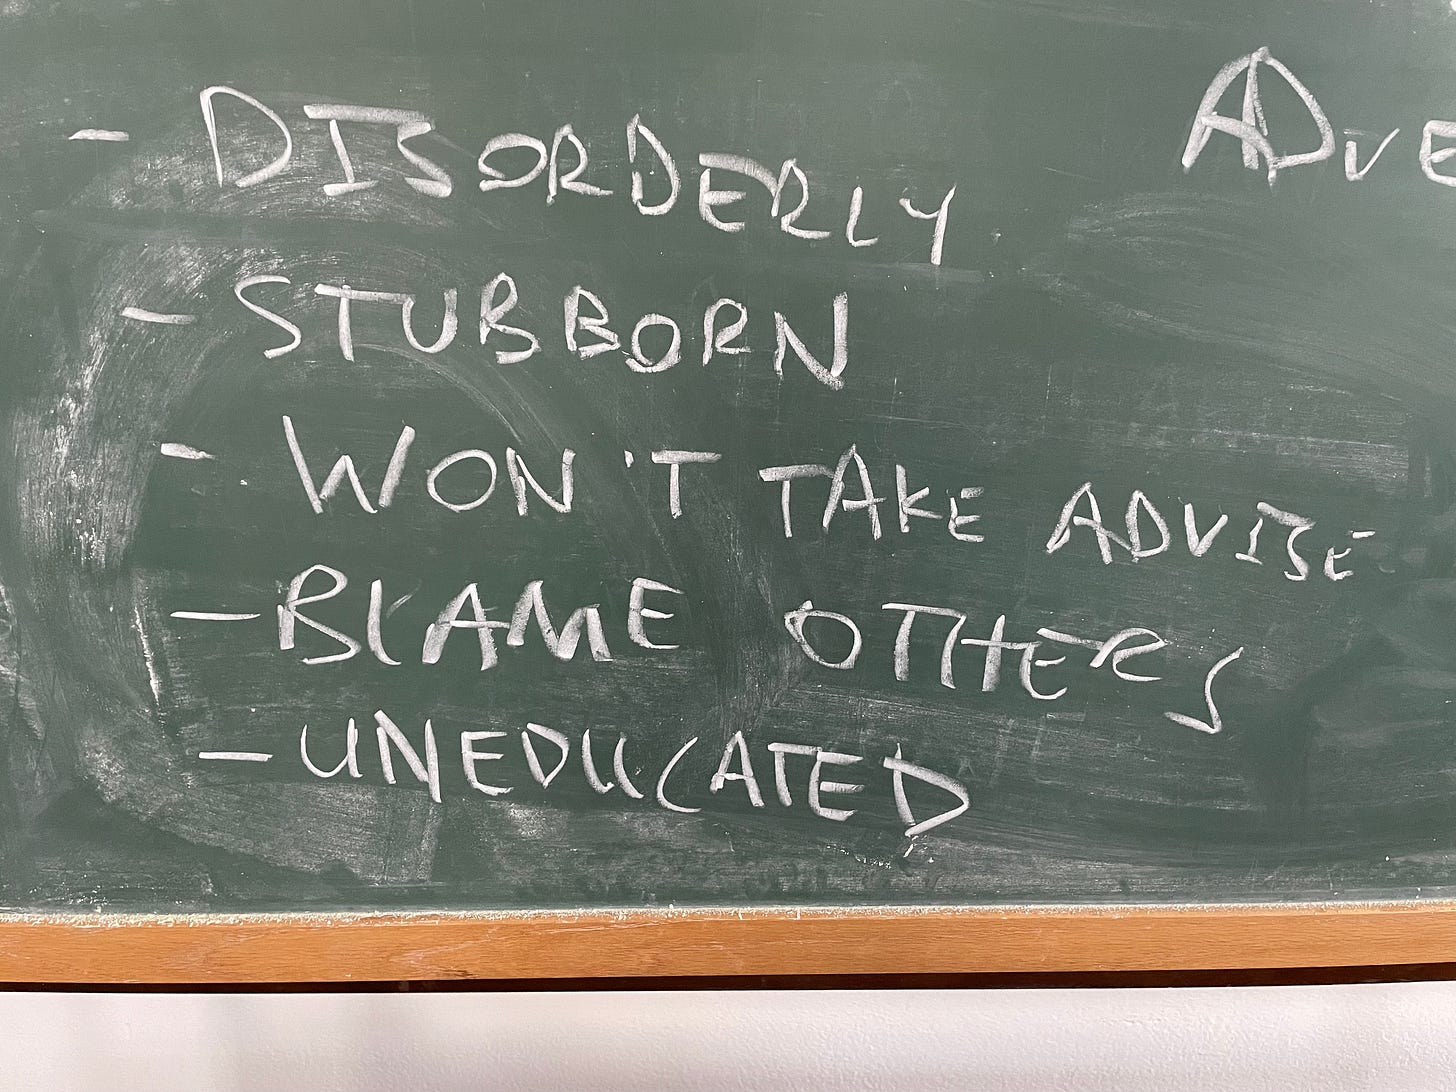 - DISORDERLY
ADVE
- STUBBORN
- WON'T TAKE ADVISE
- BLAME OTHERS
- UNEDUCATED